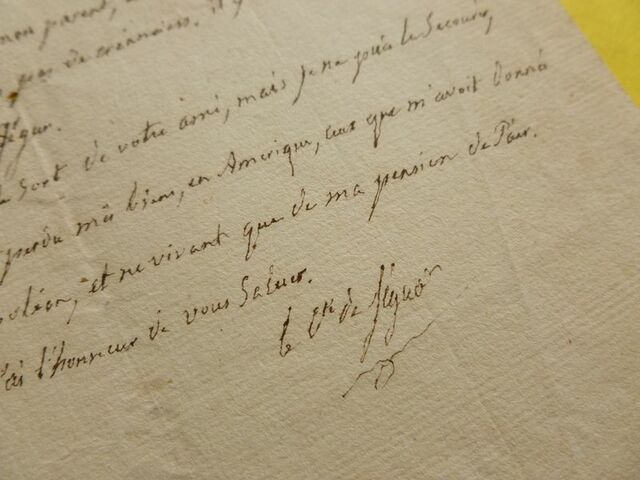 mon parent,
pas de créanciers. il y
Ségur.
Sort de votre ami, mais je ne puis le Secourir,
perdu mes biens, en Amérique, ceux que m'avoit donné
oléon, et ne vivant que de ma pension de Pair.
j'ai l'honneur de vous Saluer.
le Cte de Ségur